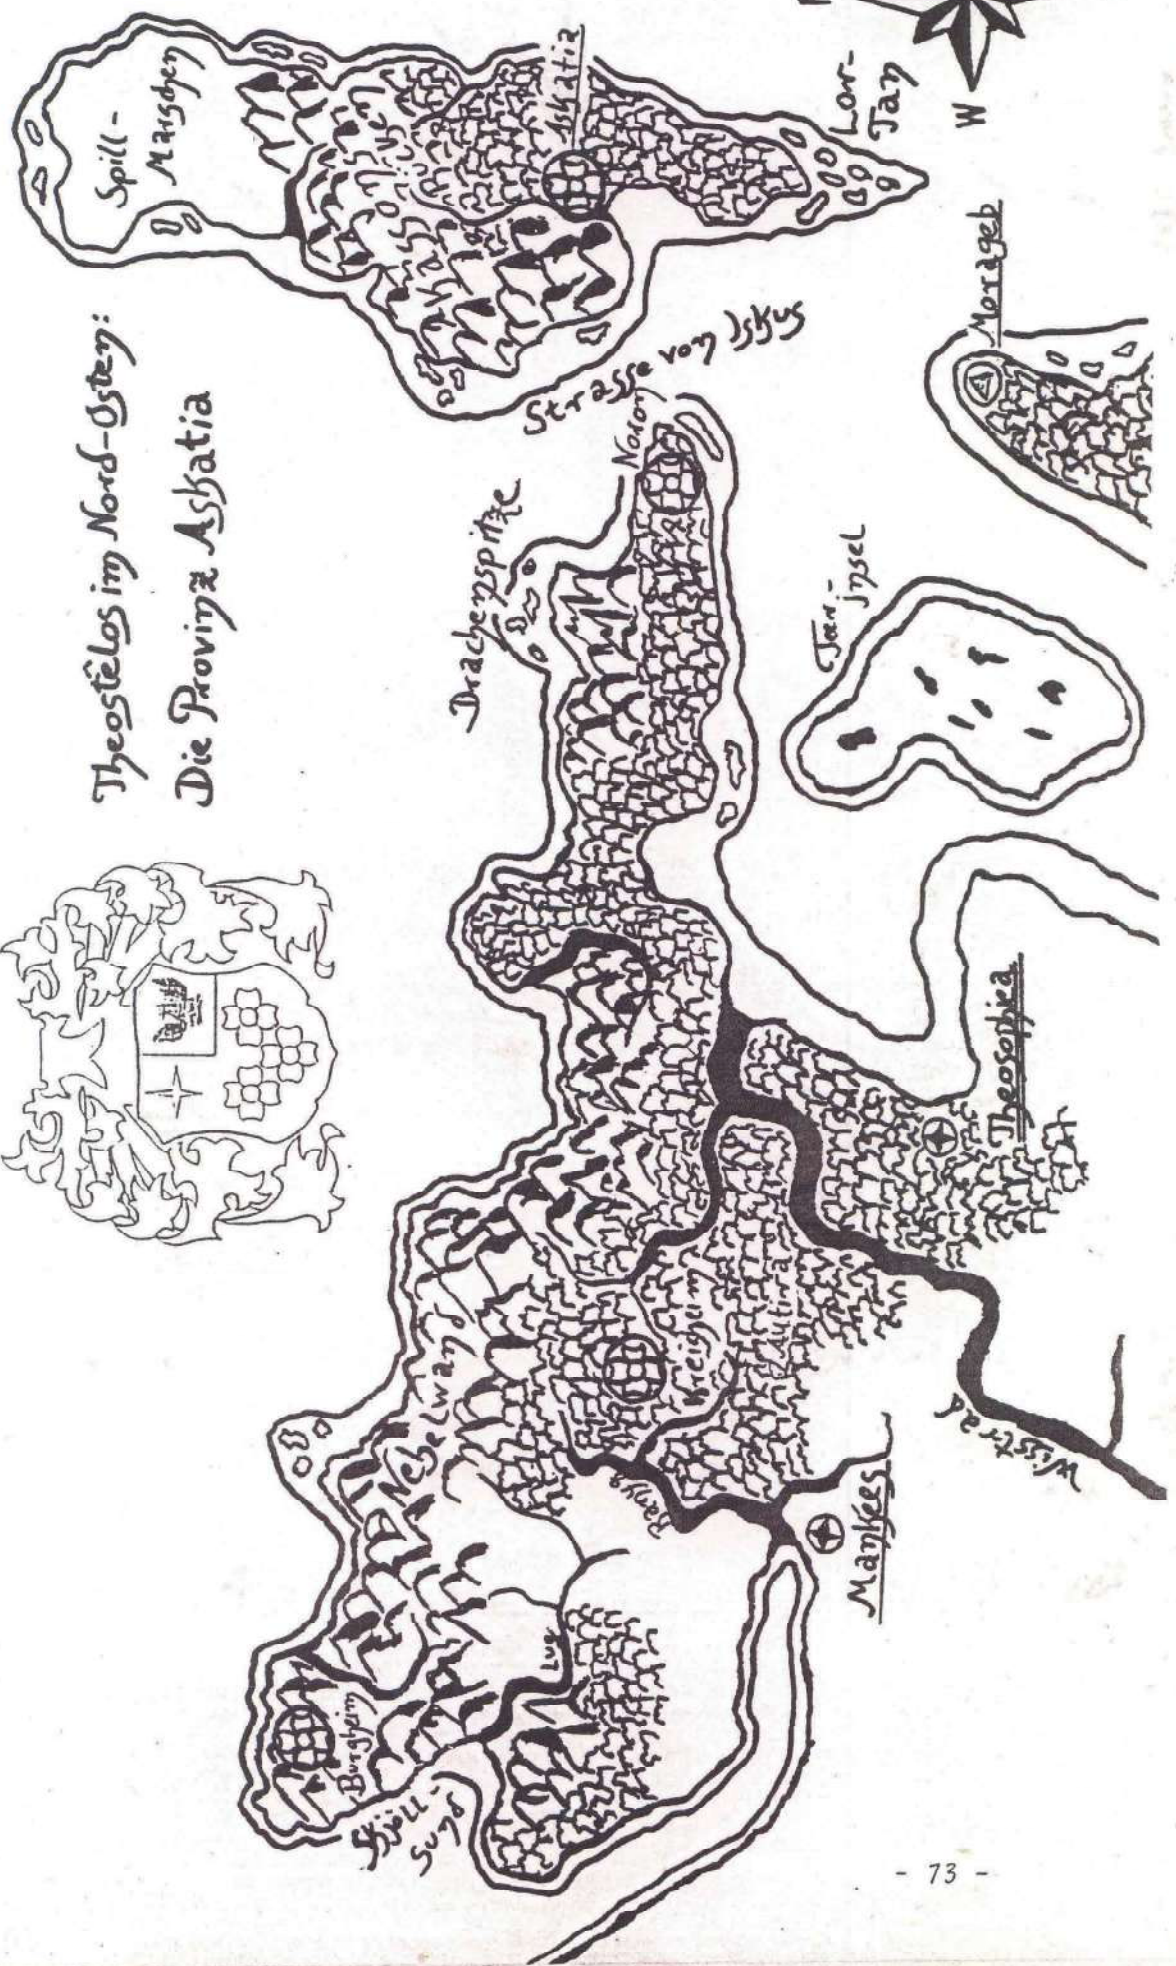 Theostêlos im Nord-Osten:
Die Provinz Askatia
Spill-
Marschen
Askatia
Lor-
Tan
W
Strasse von Iskus
Noron
Drachenspitze
Morageb
Tan-
insel
Theosophia
Nebelwand
Kreigheim
Rautira
Wisstrad
Ranya
Mankees
Lue
Burgheim
Skjöll-
Sund
- 73 -